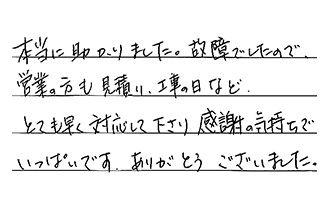 本当に助かりました。故障でしたので、
営業の方も見積り、工事の日など、
とても早く対応して下さり感謝の気持ちで
いっぱいです。ありがとうございました。